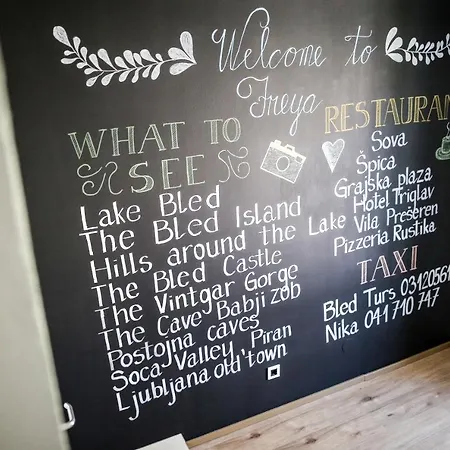 Welcome to
Freya
WHAT TO
SEE
Lake Bled
The Bled Island
Hills around the Lake
The Bled Castle
The Vintgar Gorge
The Cave Babji zob
Postojna caves
Soca Valley, Piran
Ljubljana old town
RESTAURAN
Sova
Špica
Grajska plaza
Hotel Triglav
Vila Prešeren
Pizzeria Rustika
TAXI
Bled Turs 03120561
Nika 041 710 747